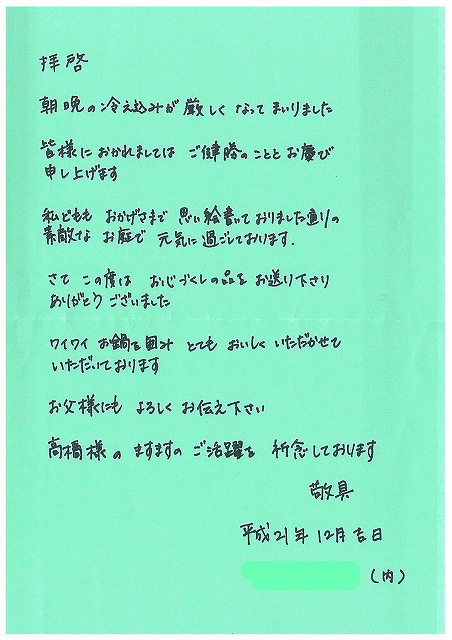 拝啓
朝晩の冷え込みが厳しくなってまいりました
皆様におかれましては ご健勝のこととお慶び
申し上げます
私どもも おかげさまで 思い絵書いておりました通りの
素敵な お庭で 元気に過ごしております.
さて この度は おじづくしの品を お送り下さり
ありがとうございました
ワイワイ お鍋を囲み とても おいしく いただかせて
いただいております
お父様にも よろしく お伝え下さい
高橋様の ますますの ご活躍を 祈念しております
敬具
平成21年12月吉日
(内)